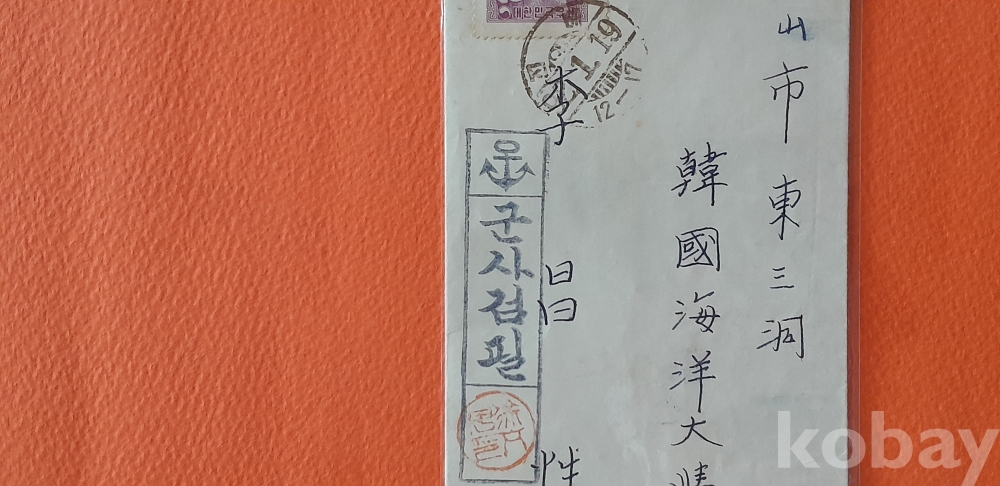 대한민국우표
1.19
12-17
山市東三洞
韓國海洋大
李昌性
군사검필
kobay